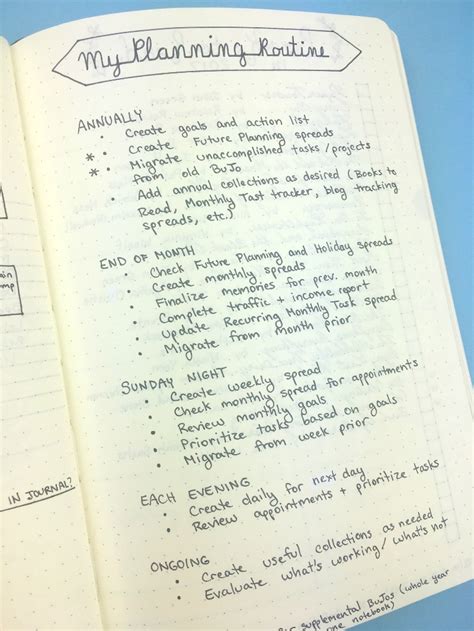 My Planning Routine
ANNUALLY
• Create goals and action list
* • Create Future Planning spreads
* • Migrate unaccomplished tasks/projects
from old BuJo
• Add annual collections as desired (Books to
Read, Monthly Tast tracker, blog tracking
spreads, etc.)
END OF MONTH
• Check Future Planning and Holiday spreads
• Create monthly spreads
• Finalize memories for prev. month
• Complete traffic + income report
• Update Recurring Monthly Task spread
• Migrate from month prior
SUNDAY NIGHT
• Create weekly spread
• Check monthly spread for appointments
• Review monthly goals
• Prioritize tasks based on goals
• Migrate from week prior
EACH EVENING
• Create daily for next day
• Review appointments + prioritize tasks
ONGOING
• Create useful collections as needed
• Evaluate what's working/what's not
supplemental BuJos (whole year
one notebook)
IN JOURNAL?